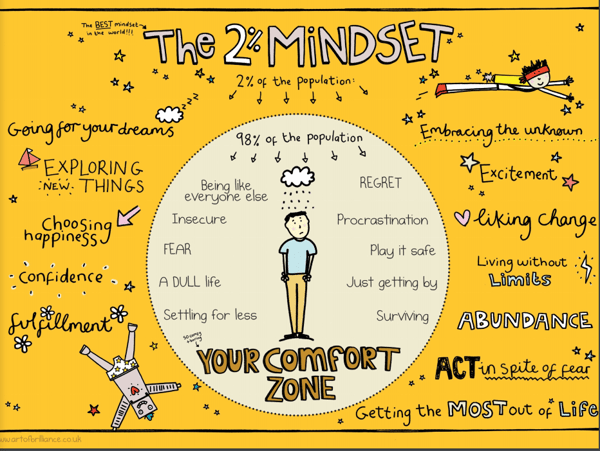 The BEST mindset
in the world!!!
The 2% MiNDSET
2% of the population:
zzzz
Going for your dreams
EXPLORING
NEW THINGS
Choosing
happiness
Confidence
fulfillment
98% of the population
Being like
everyone else
Insecure
FEAR
A DULL life
Settling for less
REGRET
Procrastination
Play it safe
Just getting by
Surviving
YOUR COMFORT
ZONE
Embracing the unknown
Excitement
liking change
Living without
Limits
ABUNDANCE
ACT in spite of fear
Getting the MOST out of Life
artofbrilliance.co.uk